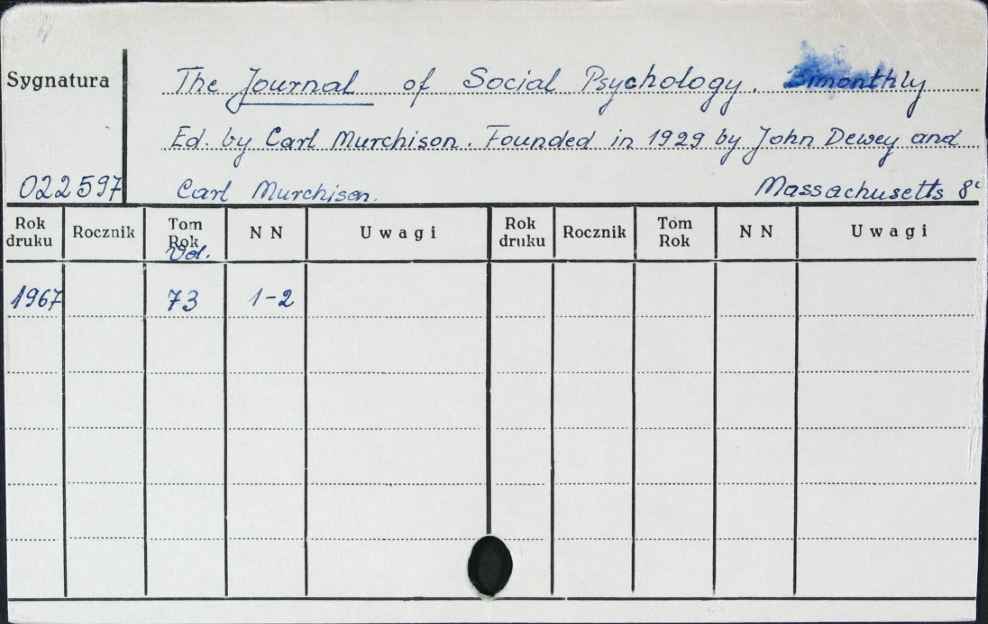 Sygnatura
The Journal of Social Psychology. Bimonthly
Ed. by Carl Murchison. Founded in 1929 by John Dewey and
022597 Carl Murchison. Massachusetts 8°
Rok druku Rocznik Tom Rok Vol. N N Uwagi Rok druku Rocznik Tom Rok N N Uwagi
1967 73 1-2